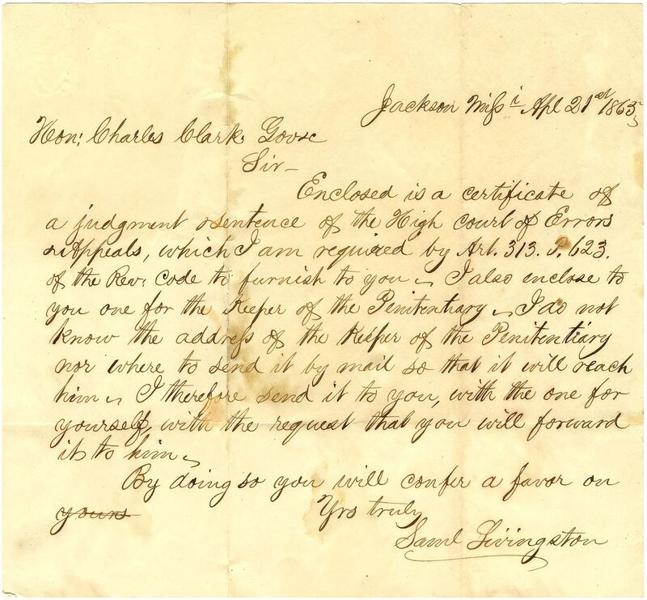 Jackson Missi Apl 21st 1865
Hon: Charles Clark, Govr
Sir—
Enclosed is a certificate of
a judgment & sentence of the High court of Errors
& Appeals, which I am required by Art. 313. P. 623.
of the Rev: Code to furnish to you — I also enclose to
you one for the Keeper of the Penitentiary — I do not
know the address of the Keeper of the Penitentiary
nor where to send it by mail so that it will reach
him — I therefore send it to you, with the one for
yourself, with the request that you will forward
it to him —
By doing so you will confer a favor on
yours Yrs truly
Saml Livingston